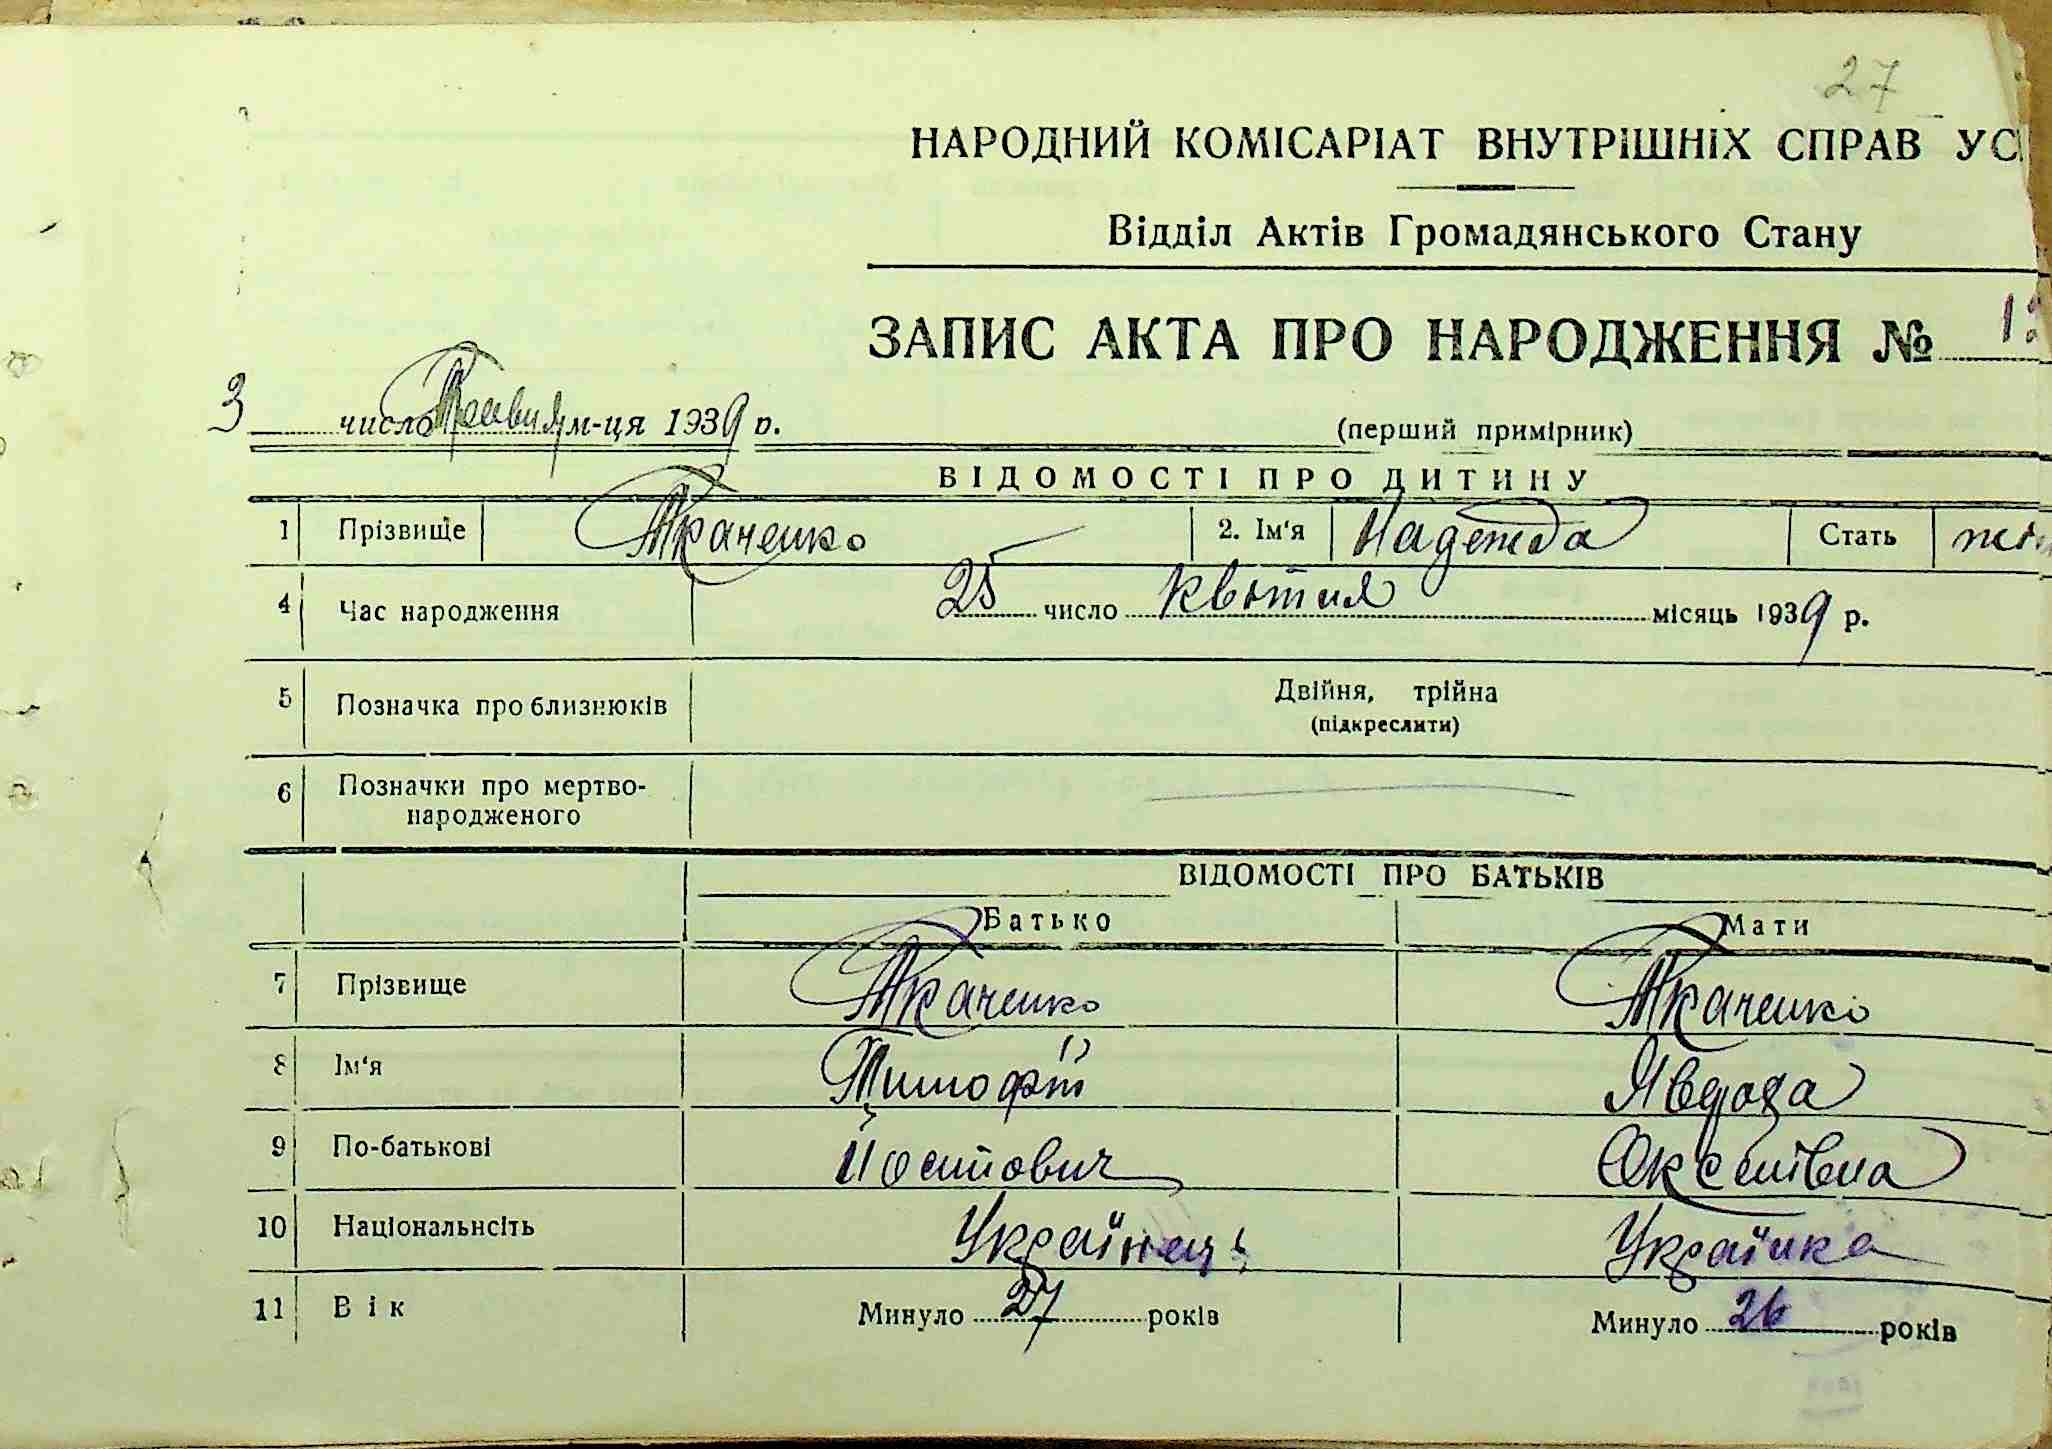 27
НАРОДНИЙ КОМІСАРІАТ ВНУТРІШНІХ СПРАВ УС
Відділ Актів Громадянського Стану
ЗАПИС АКТА ПРО НАРОДЖЕННЯ №
3 число Травня м-ця 1939 р.
(перший примірник)
ВІДОМОСТІ ПРО ДИТИНУ
1 Прізвище Ткаченко 2. Ім'я Надежда Стать
4 Час народження 25 число квітня місяць 1939 р.
5 Позначка про близнюків Двійня, трійна
(підкреслити)
6 Позначки про мертво-
народженого
ВІДОМОСТІ ПРО БАТЬКІВ
Батько Мати
7 Прізвище Ткаченко Ткаченко
8 Ім'я Тимофій Явдоха
9 По-батькові Йосипович
10 Національнсіть Українець Українка
11 Вік Минуло 27 років Минуло 26 років